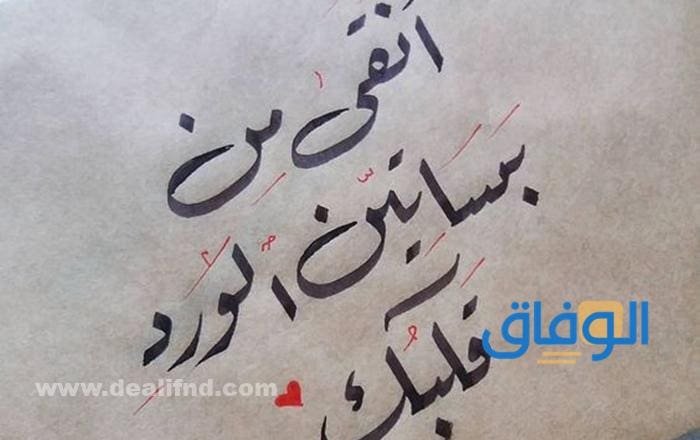 أنقى من
بساتين الورد
قلبك
الوفاق
www.dealifnd.com